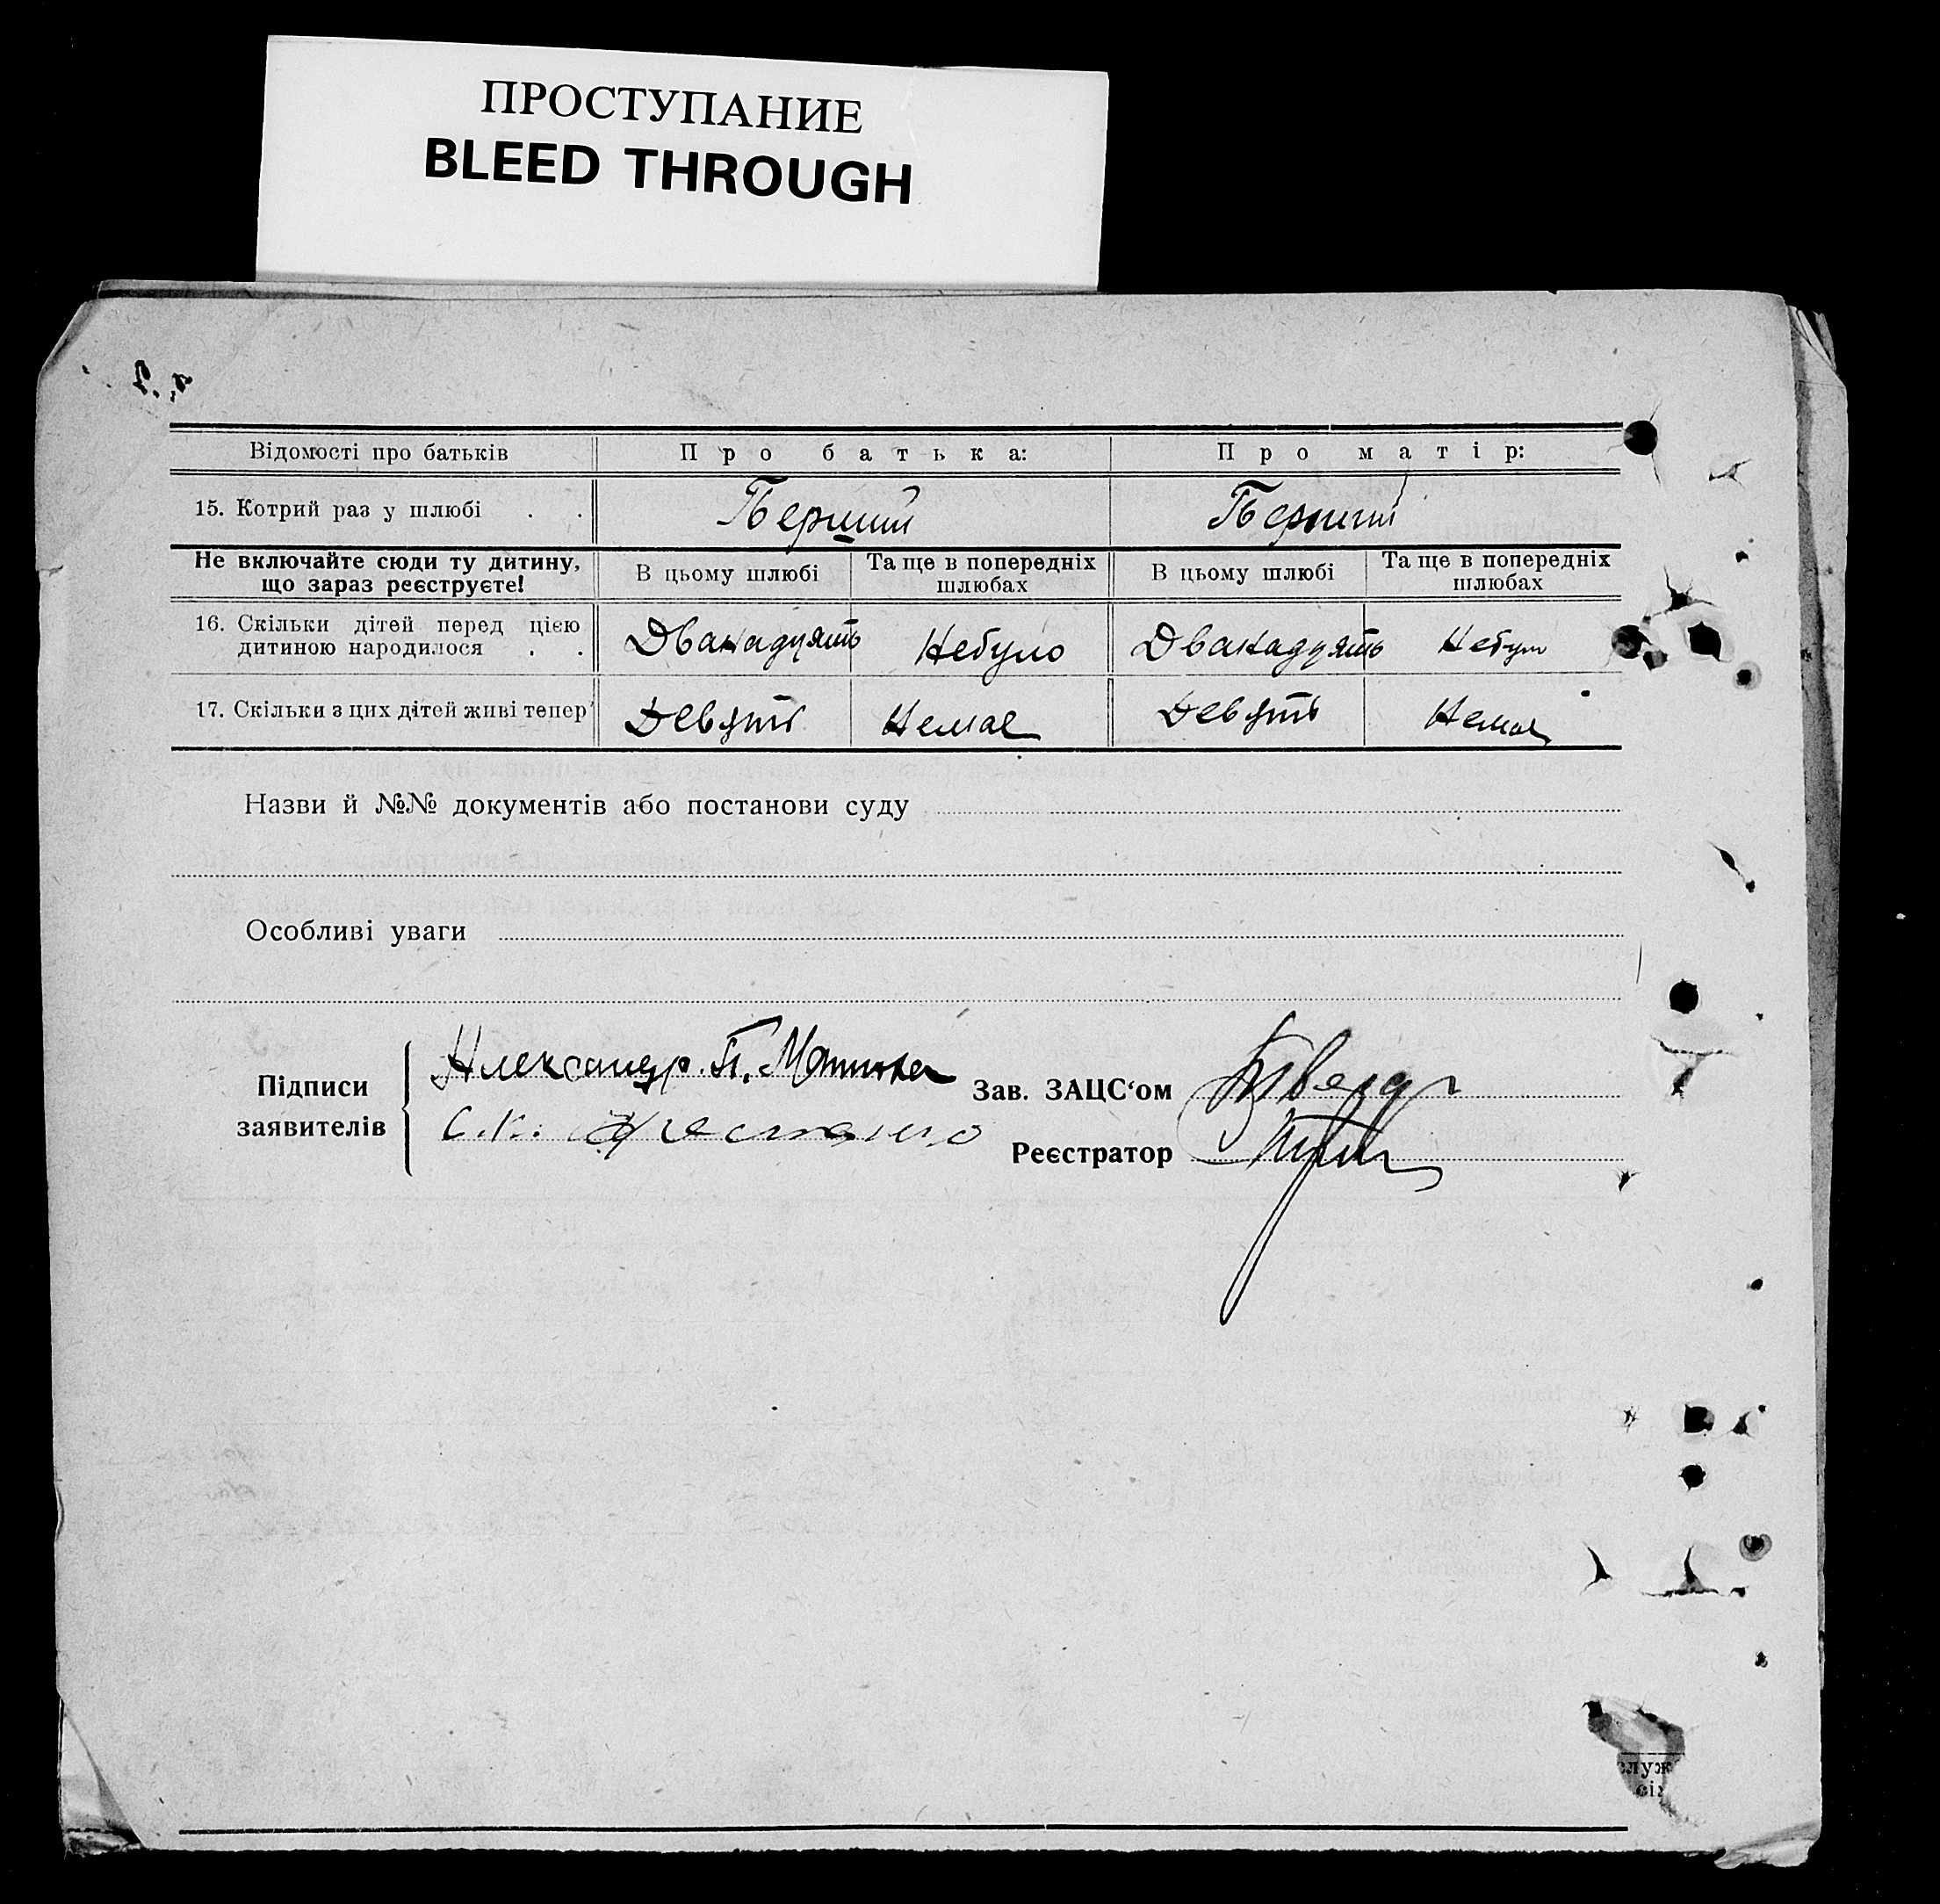 ПРОСТУПАНИЕ
BLEED THROUGH
Відомості про батьків Про батька: Про матір:
15. Котрий раз у шлюбі . . Перший Перший
Не включайте сюди ту дитину, що зараз реєструєте! В цьому шлюбі Та ще в попередніх шлюбах В цьому шлюбі Та ще в попередніх шлюбах
16. Скільки дітей перед цією дитиною народилося . . Дванадцять Небуло Дванадцять Небуло
17. Скільки з цих дітей живі тепер Девять Немає Девять Немає
Назви й №№ документів або постанови суду
Особливі уваги
Підписи заявителів
Александр. П.
С.К.
Зав. ЗАЦС‘ом
Реєстратор
служ
сіл